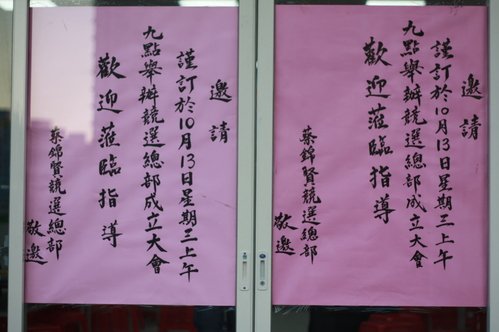 邀請
謹訂於10月13日星期三上午
九點舉辦競選總部成立大會
歡迎蒞臨指導
蔡錦賢競選總部
敬邀
邀請
謹訂於10月13日星期三上午
九點舉辦競選總部成立大會
歡迎蒞臨指導
蔡錦賢競選總部
敬邀